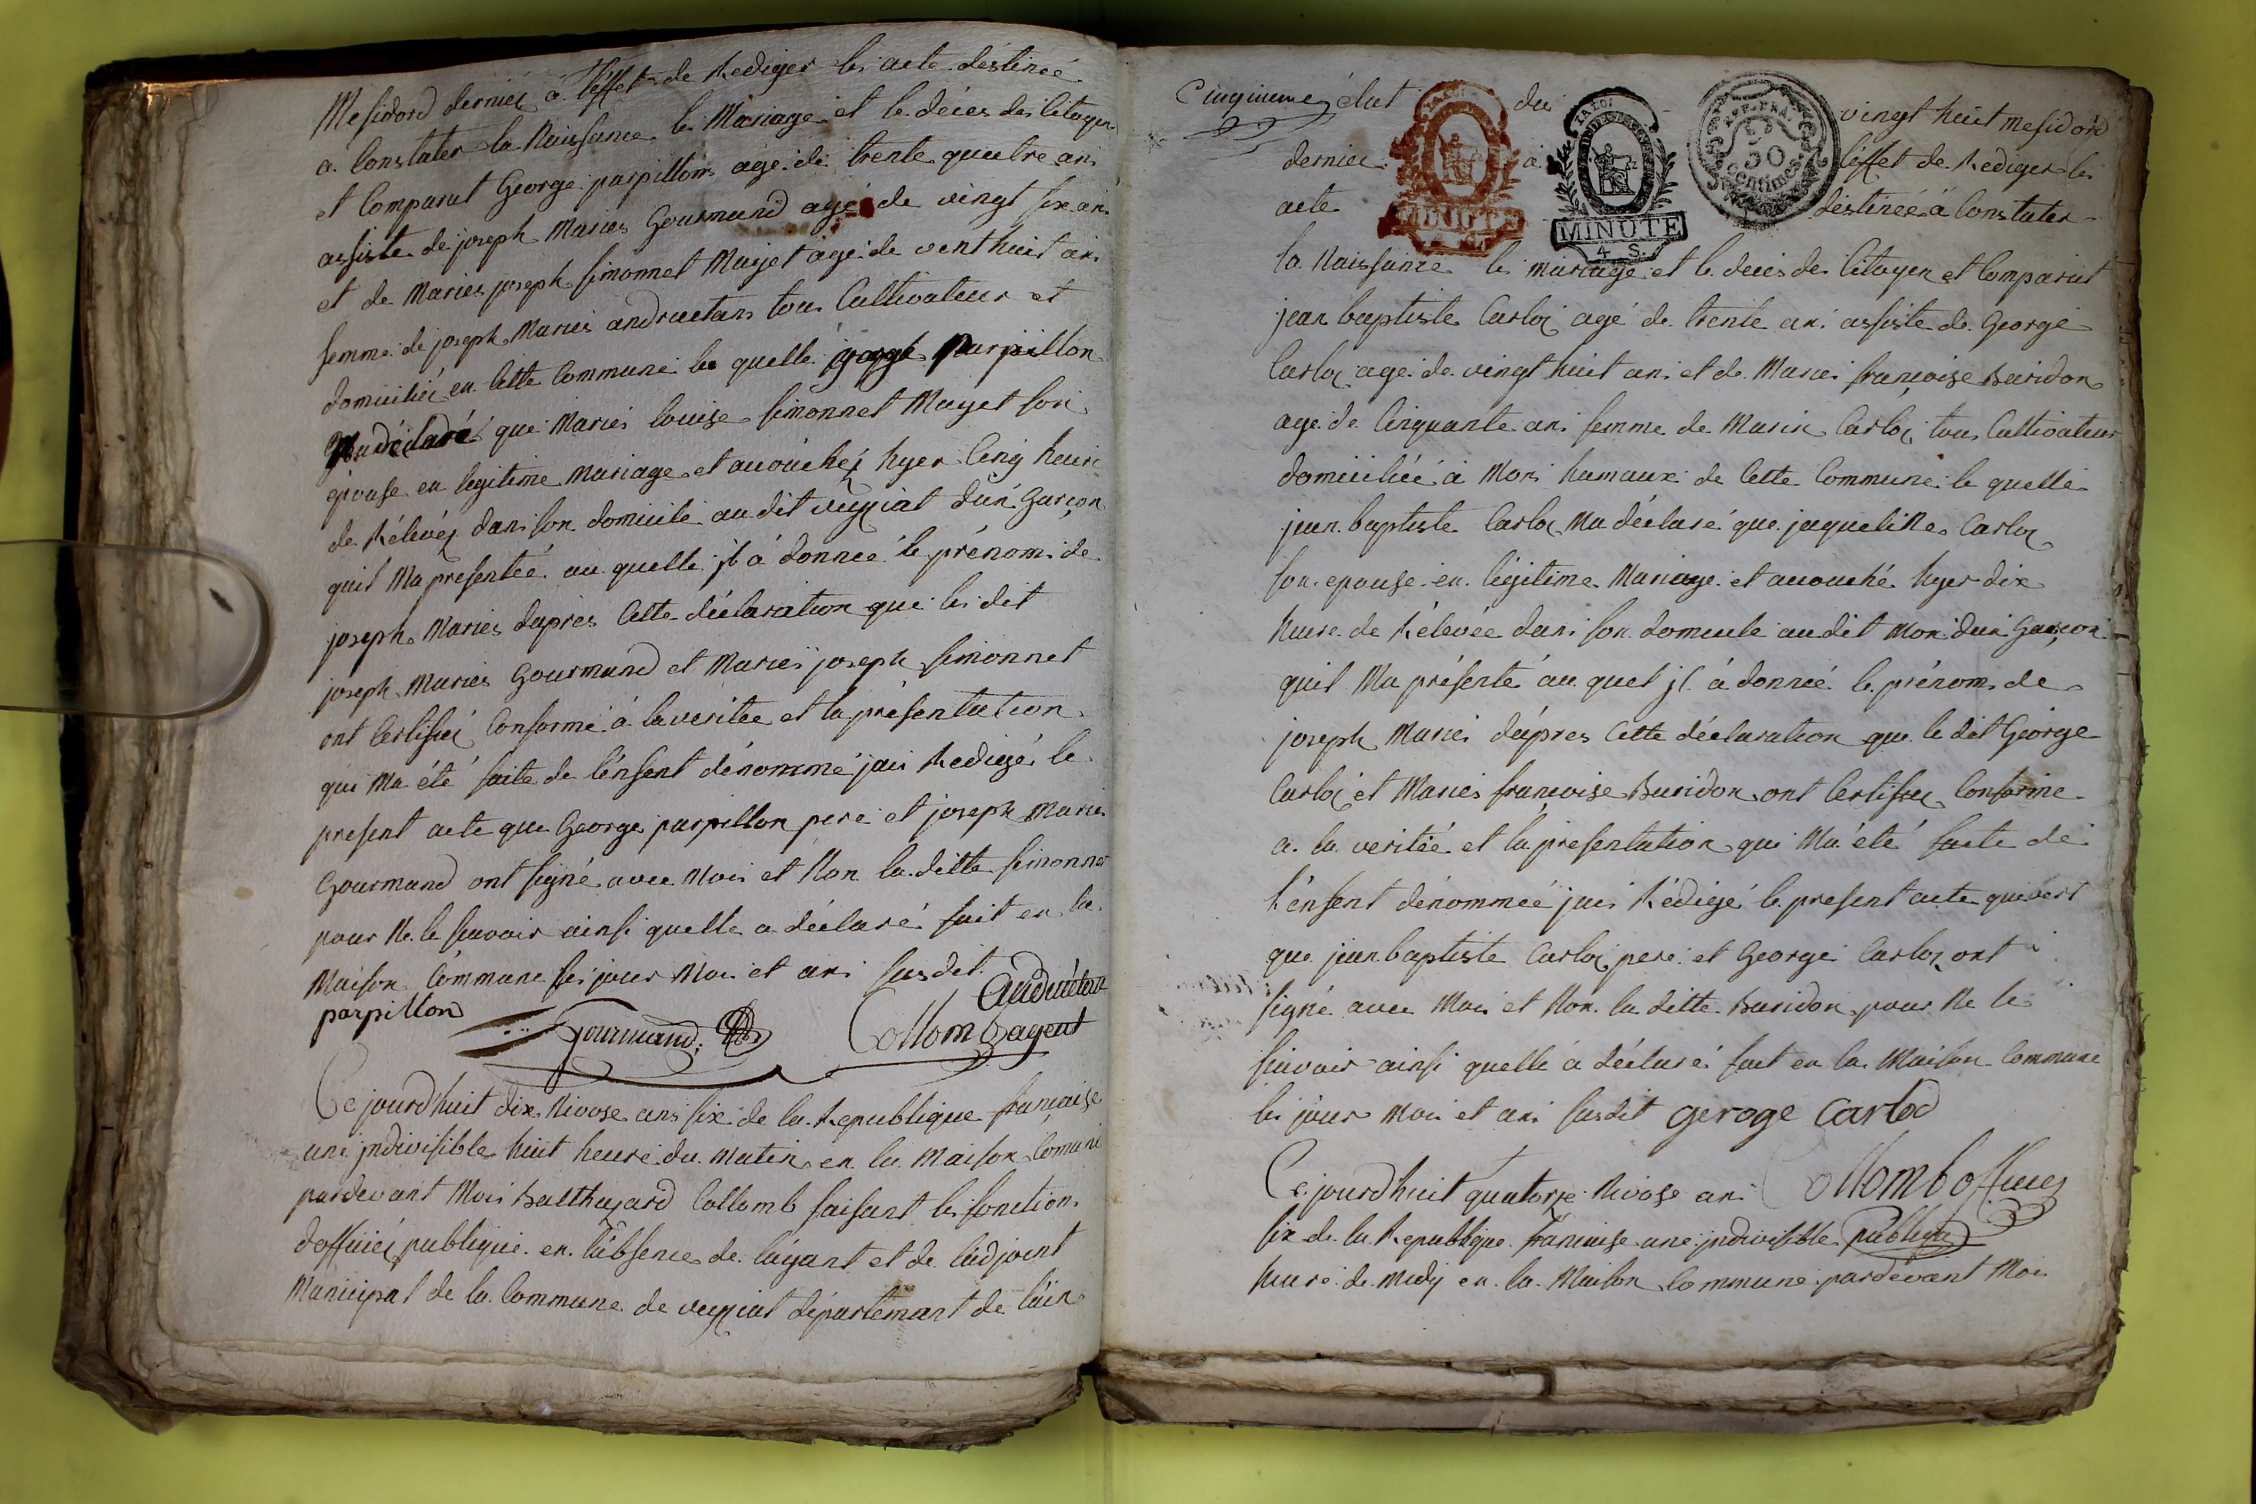 Mesidord dernier à l'éffet de Rediger les acte déstineé
a Constater la Naissance les Mariage et le décés des Citoyen
et Comparut George parpillon agé de trente quatre ans
assiste de joseph Maries Gourmand agé de vingt six ans
et de Maries joseph simonnet Mayet agé de vent huit ans
femme de joseph Maries andruetans tous Cultivateur et
domiciliés en Cette Commune le quelle george Parpillon
Ma déclaré que Maries louise simonnet Mayet son
epouse en legitime mariage et accouchéz hyer Cinq heure
de Rélévéz dans son domicile au dit veyziat d'un Garçon
quil Ma presenteé au quelle jl à donneé le prénom de
joseph Maries dapres Cette déclaration que les dit
joseph Maries Gourmand et Maries joseph simonnet
ont Certifiés Conforme à la veritée et la présentation
qui Ma été faite de lénfent dénommé jais Redigé le
present acte que George parpillon pere et joseph Maries
Gourmand ont signé avec Mois et Non la ditte simonnet
pour Ne le savoir ainsi quelle a déclaré fait en la
Maison Commune les jour Mois et ans susdit
Andruétan
parpillon Gourmand Collomb agent
Ce jourdhuit dix Nivose ans six de la Republique francaise
une jndivisible huit heure du matin en la Maison Comune
pardevant Mois Balthazard Collomb faisant les fonction
dofficiés publique en l'absence de lagant et de ladjoint
Municipal de la Commune de veyziat départemant de l'ain
Cinquieme élut du vingt huit mesidord
dernier à l'éffet de Rediger les
acte déstineé à Constater
LA LOI
MINUTE
4 S.
REP. FRA.
50
centimes
la Naissance les mariage et le decés des Citoyen et Comparut
jean baptiste Carloz agé de trente ans assiste de George
Carloz agé de vingt huit ans et de Maries françoise Buridon
agé de Cinquante ans femme de Maris Carloz tous Cultivateur
domiciliéé à Mons hamaux de Cette Commune le quelle
jean baptiste Carloz Ma déclaré que jaqueline Carloz
son epouse en légitime Mariage et accouché hyer dix
heure de Rélevée dans son domicile au dit Mon d'un Garçon
quil Ma présenté au quel jl à donneé le prénom de
joseph Maries dápres Cette déclaration que le dit George
Carloz et Maries francoise Buridon ont Certifiez Conforme
a la veritéé et la présentation qui Ma été faite de
lénfent dénommeé jais Rédigé le present acte
que jean baptiste Carloz pere et George Carloz ont
signé avec Mois et Non la ditte Buridon pour Ne le
savoir ainsi quelle à déclaré fait en la Maison Commune
les jour Mois et ans susdit geroge carloc
Ce jourdhuit quatorze Nivose ans Collomb officiez
six de la Republique francaise une jndivisible publique
heure de midy en la Maison Commune pardévant Moi